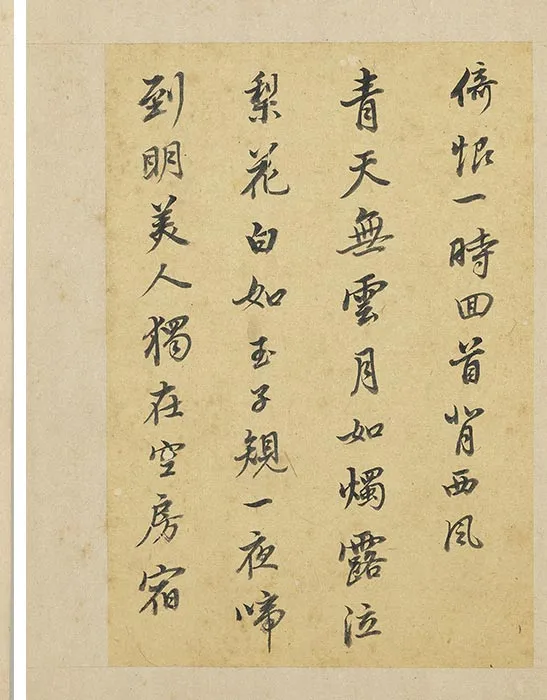 倚恨一時回首背西風
青天無雲月如燭露泣
梨花白如玉子規一夜啼
到明美人獨在空房宿